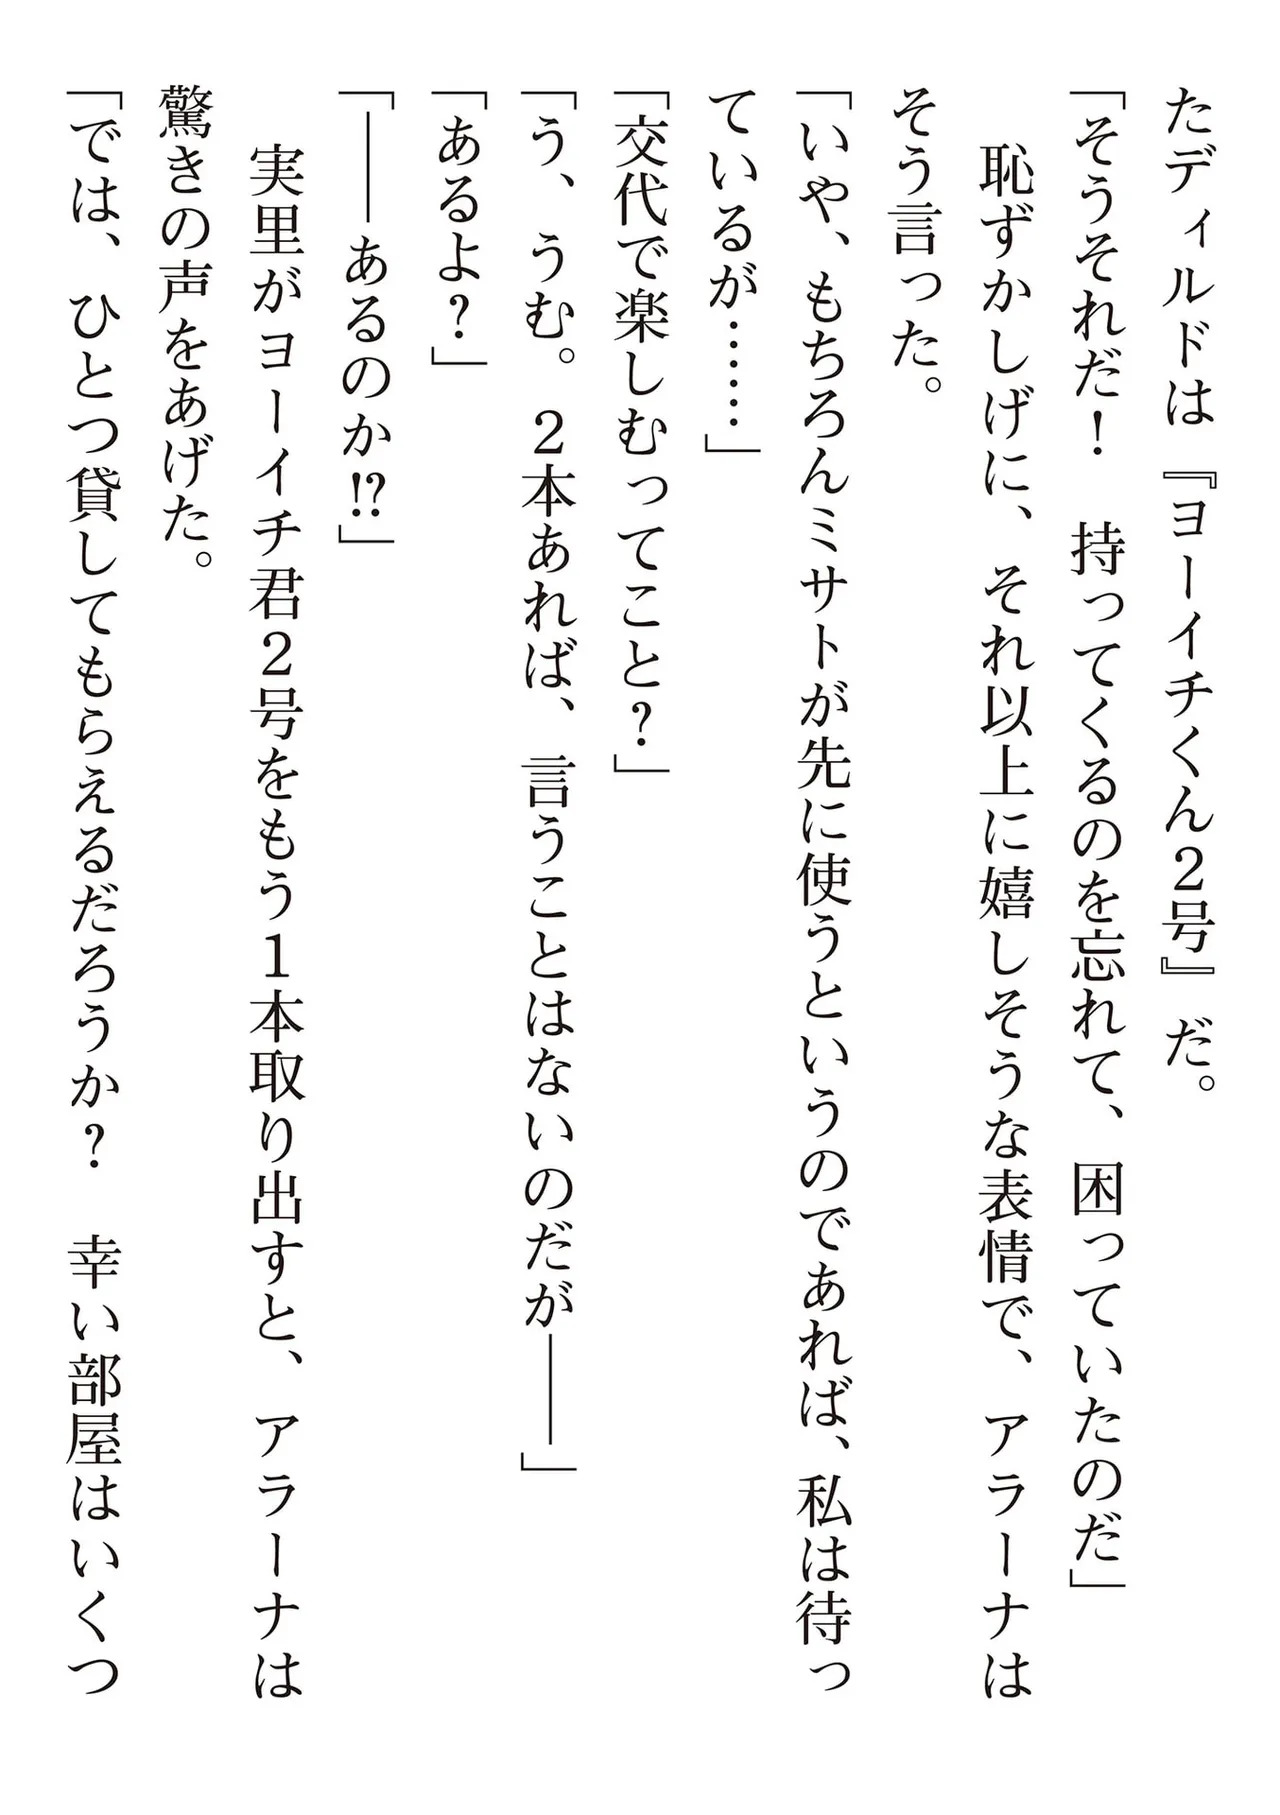 たディルドは『ヨーイチくん２号』だ。
「そうそれだ！　持ってくるのを忘れて、困っていたのだ」
　恥ずかしげに、それ以上に嬉しそうな表情で、アラーナは
そう言った。
「いや、もちろんミサトが先に使うというのであれば、私は待っ
ているが……」
「交代で楽しむってこと？」
「う、うむ。２本あれば、言うことはないのだが――」
「あるよ？」
「――あるのか⁉」
　実里がヨーイチ君２号をもう１本取り出すと、アラーナは
驚きの声をあげた。
「では、ひとつ貸してもらえるだろうか？　幸い部屋はいくつ